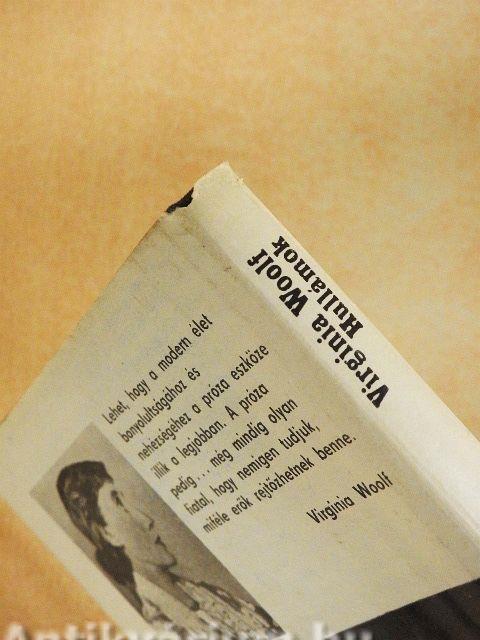 Virginia Woolf
Hullámok
Lehet, hogy a modern élet
bonyolultságához és
nehézségéhez a próza eszköze
illik a legjobban. A próza
pedig... még mindig olyan
fiatal, hogy nemigen tudjuk,
miféle erők rejtőzhetnek benne.
Virginia Woolf
Antikvarium.hu